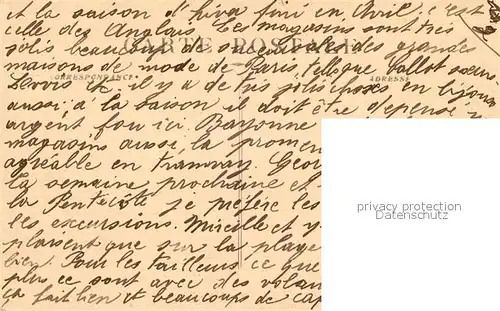 et la saison d'hiver fini en Avril, c'est
celle des Anglais. Les magasins sont très
jolis beaucoup de succursales des grandes
CARTE POSTALE
maisons de mode de Paris telle que Callot soeurs
CORRESPONDANCE
ADRESSE
il y a de très jolis choses en bijoux
aussi à la saison il doit être dépensé
argent fou ici. Bayonne
magasins aussi, la promen
agréable en tramway. Geor
la semaine prochaine et
la Pentecôte je préfère les
les excursions. Mireille et
plaisent que sur la plage
bien. Pour les tailleurs ce que
plus ce sont avec des volan
ça fait bien et beaucoup de cap
privacy protection
Datenschutz